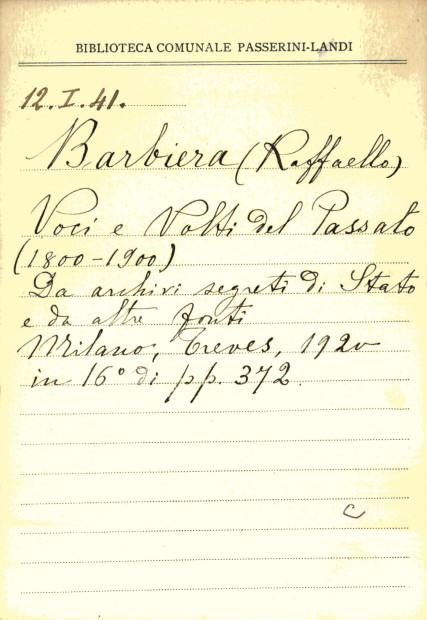 BIBLIOTECA COMUNALE PASSERINI-LANDI
12.I.41.
Barbiera (Raffaello)
Voci e Volti del Passato
(1800-1900)
Da archivi segreti di Stato
e da altre fonti
Milano, Treves, 1920
in 16° di pp. 372.
C